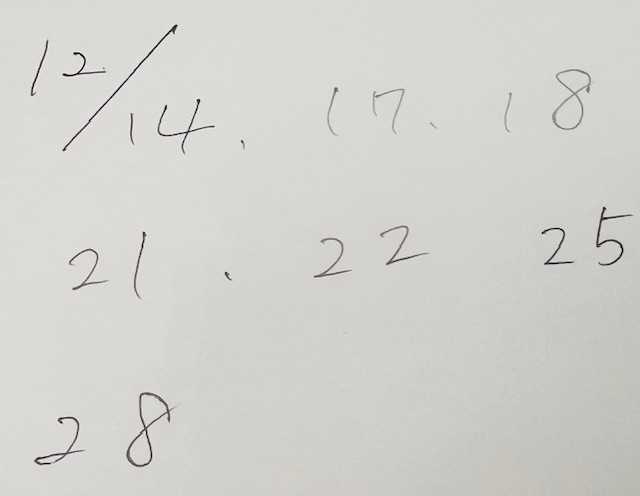 12/14. 17. 18
21. 22 25
28